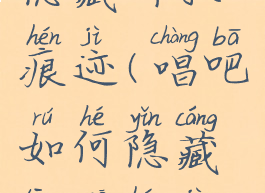 hén jì chàng bā
痕迹(唱吧
rú hé yǐn cáng
如何隐藏